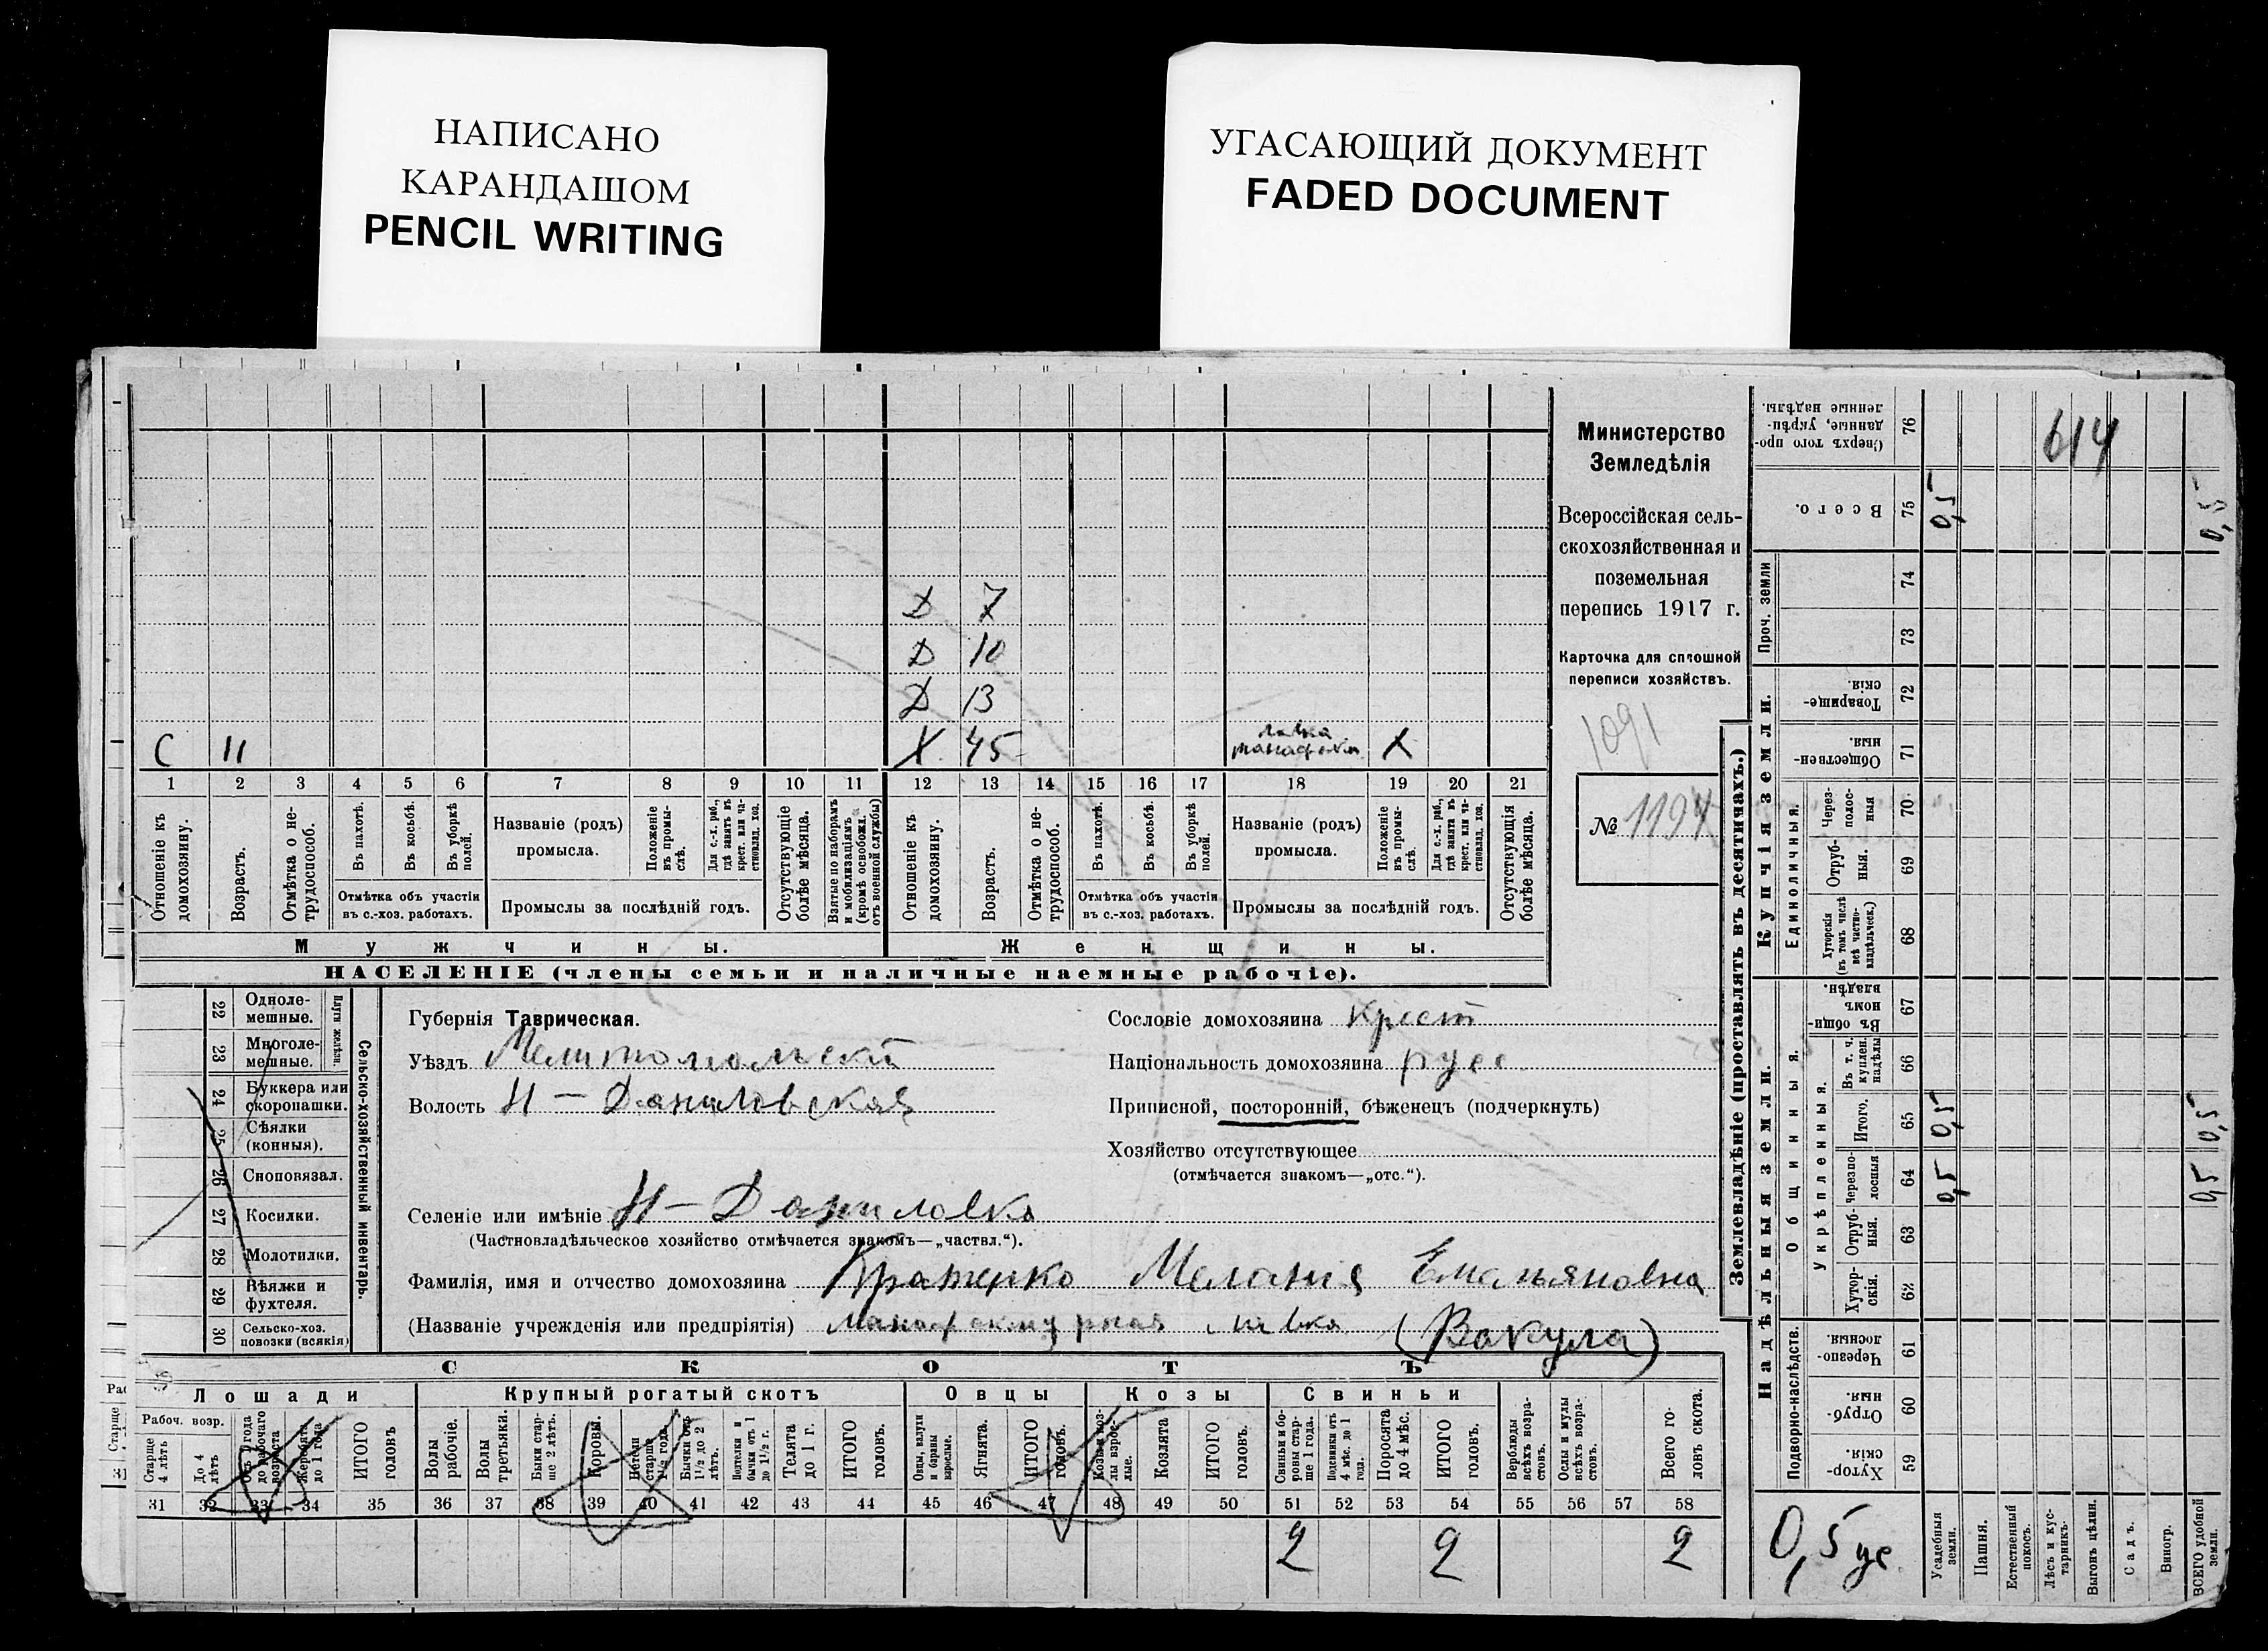 НАПИСАНО
КАРАНДАШОМ
PENCIL WRITING
УГАСАЮЩИЙ ДОКУМЕНТ
FADED DOCUMENT
Д 7
Д 10
Д 13
С 11 Х 45 лавка Х
1 2 3 4 5 6 7 8 9 10 11 12 13 14 15 16 17 18 19 20 21
Отношеніе къ домохозяину.
Возрастъ.
Отмѣтка о не-трудоспособ.
Въ пахотѣ.
Въ косьбѣ.
Въ уборкѣ полей.
Отмѣтка объ участіи
въ с.-хоз. работахъ.
Названіе (родъ)
промысла.
Положеніе въ промы-слѣ.
Для с.-х. раб., гдѣ занятъ въ крест. или ча-стновлад. хоз.
Промыслы за послѣдній годъ.
Отсутствующіе болѣе мѣсяца.
Взятые по наборамъ и мобилизаціямъ (кромѣ освобожд. отъ военной службы)
Отношеніе къ домохозяину.
Возрастъ.
Отмѣтка о не-трудоспособ.
Въ пахотѣ.
Въ косьбѣ.
Въ уборкѣ полей.
Отмѣтка объ участіи
въ с.-хоз. работахъ.
Названіе (родъ)
промысла.
Положеніе въ промы-слѣ.
Для с.-х. раб., гдѣ занята въ крест. или ча-стновлад. хоз.
Промыслы за послѣдній годъ.
Отсутствующія болѣе мѣсяца.
Мужчины. Женщины.
НАСЕЛЕНІЕ (члены семьи и наличные наемные рабочіе).
Министерство
Земледѣлія
Всероссійская сель-
скохозяйственная и
поземельная
перепись 1917 г.
Карточка для сплошной
переписи хозяйствъ.
1091
№ 1194
22 Одноле-мешные.
23 Многоле-мешные.
Плуги желѣзн.
24 Буккера или скоропашки.
25 Сѣялки (конныя).
26 Сноповязал.
27 Косилки.
28 Молотилки.
29 Вѣялки и фухтеля.
30 Сельско-хоз. повозки (всякія)
Сельско-хозяйственный инвентарь.
Губернія Таврическая.
Уѣздъ Мелитопольскій
Волость Н-Даниловская
Селеніе или имѣніе Н-Даниловка
(Частновладѣльческое хозяйство отмѣчается знакомъ—„частвл.“).
Фамилія, имя и отчество домохозяина Мелания Емельяновна
(Названіе учрежденія или предпріятія) Мануфактурная лавка (Вакула)
Сословіе домохозяина крест
Національность домохозяина русс
Приписной, посторонній, бѣженецъ (подчеркнуть)
Хозяйство отсутствующее
(отмѣчается знакомъ—„отс.“).
СКОТЪ
Лошади Крупный рогатый скотъ Овцы Козы Свиньи
Рабоч. возр.
Старше 4 лѣтъ
До 4 лѣтъ
Отъ 1 года до рабочаго возраста
Жеребята до 1 года
ИТОГО головъ
Волы рабочіе.
Волы третьяки.
Быки стар-ше 2 лѣтъ.
Коровы.
Нетели старше 1½ года
Бычки отъ 1½ до 2 лѣтъ.
Подтелки и бычки отъ 1 до 1½ г.
Телята до 1 г.
ИТОГО головъ.
Овцы, валухи и бараны взрослые.
Ягнята.
ИТОГО головъ.
Козы и коз-лы взрос-лые.
Козлята
ИТОГО головъ.
Свиньи и бо-ровы стар-ше 1 года.
Подсвинки отъ 4 мѣс. до 1 года.
Поросята до 4 мѣс.
ИТОГО головъ.
Верблюды всѣхъ возра-стовъ.
Ослы и мулы всѣхъ возра-стовъ.
Всего го-ловъ скота.
31 32 33 34 35 36 37 38 39 40 41 42 43 44 45 46 47 48 49 50 51 52 53 54 55 56 57 58
2 2 2
Землевладѣніе (проставлять въ десятинахъ.)
Надѣльныя земли. Купчія земли.
Подворно-наслѣдств. Общинныя. Единоличныя. Проч. земли
Укрѣпленныя.
Хутор-скія. 59
Отруб-ныя. 60
Черезпо-лосныя 61
Хутор-скія. 62
Отруб-ныя. 63
Черезпо-лосныя 64
Итого. 65
Въ т. ч. куплен. надѣлы 66
Въ общи-номъ владѣн. 67
Хуторскія (въ томъ числѣ всѣ частно-владѣльческ.) 68
Отруб-ныя. 69
Через-полос-ныя 70
Обществен-ныя. 71
Товарище-скія. 72
73
74
Всего. 75
Сверхъ того про-данные, укрѣп-ленные надѣлы. 76
614
0,5 0,5
0,5 0,5
0,5 0,5
0,5 ус
Усадебныя земли.
Пашня.
Естественный покосъ.
Лѣсъ и кус-тарникъ.
Выгонъ цѣлин.
Садъ.
Виногр.
ВСЕГО удобной земли.